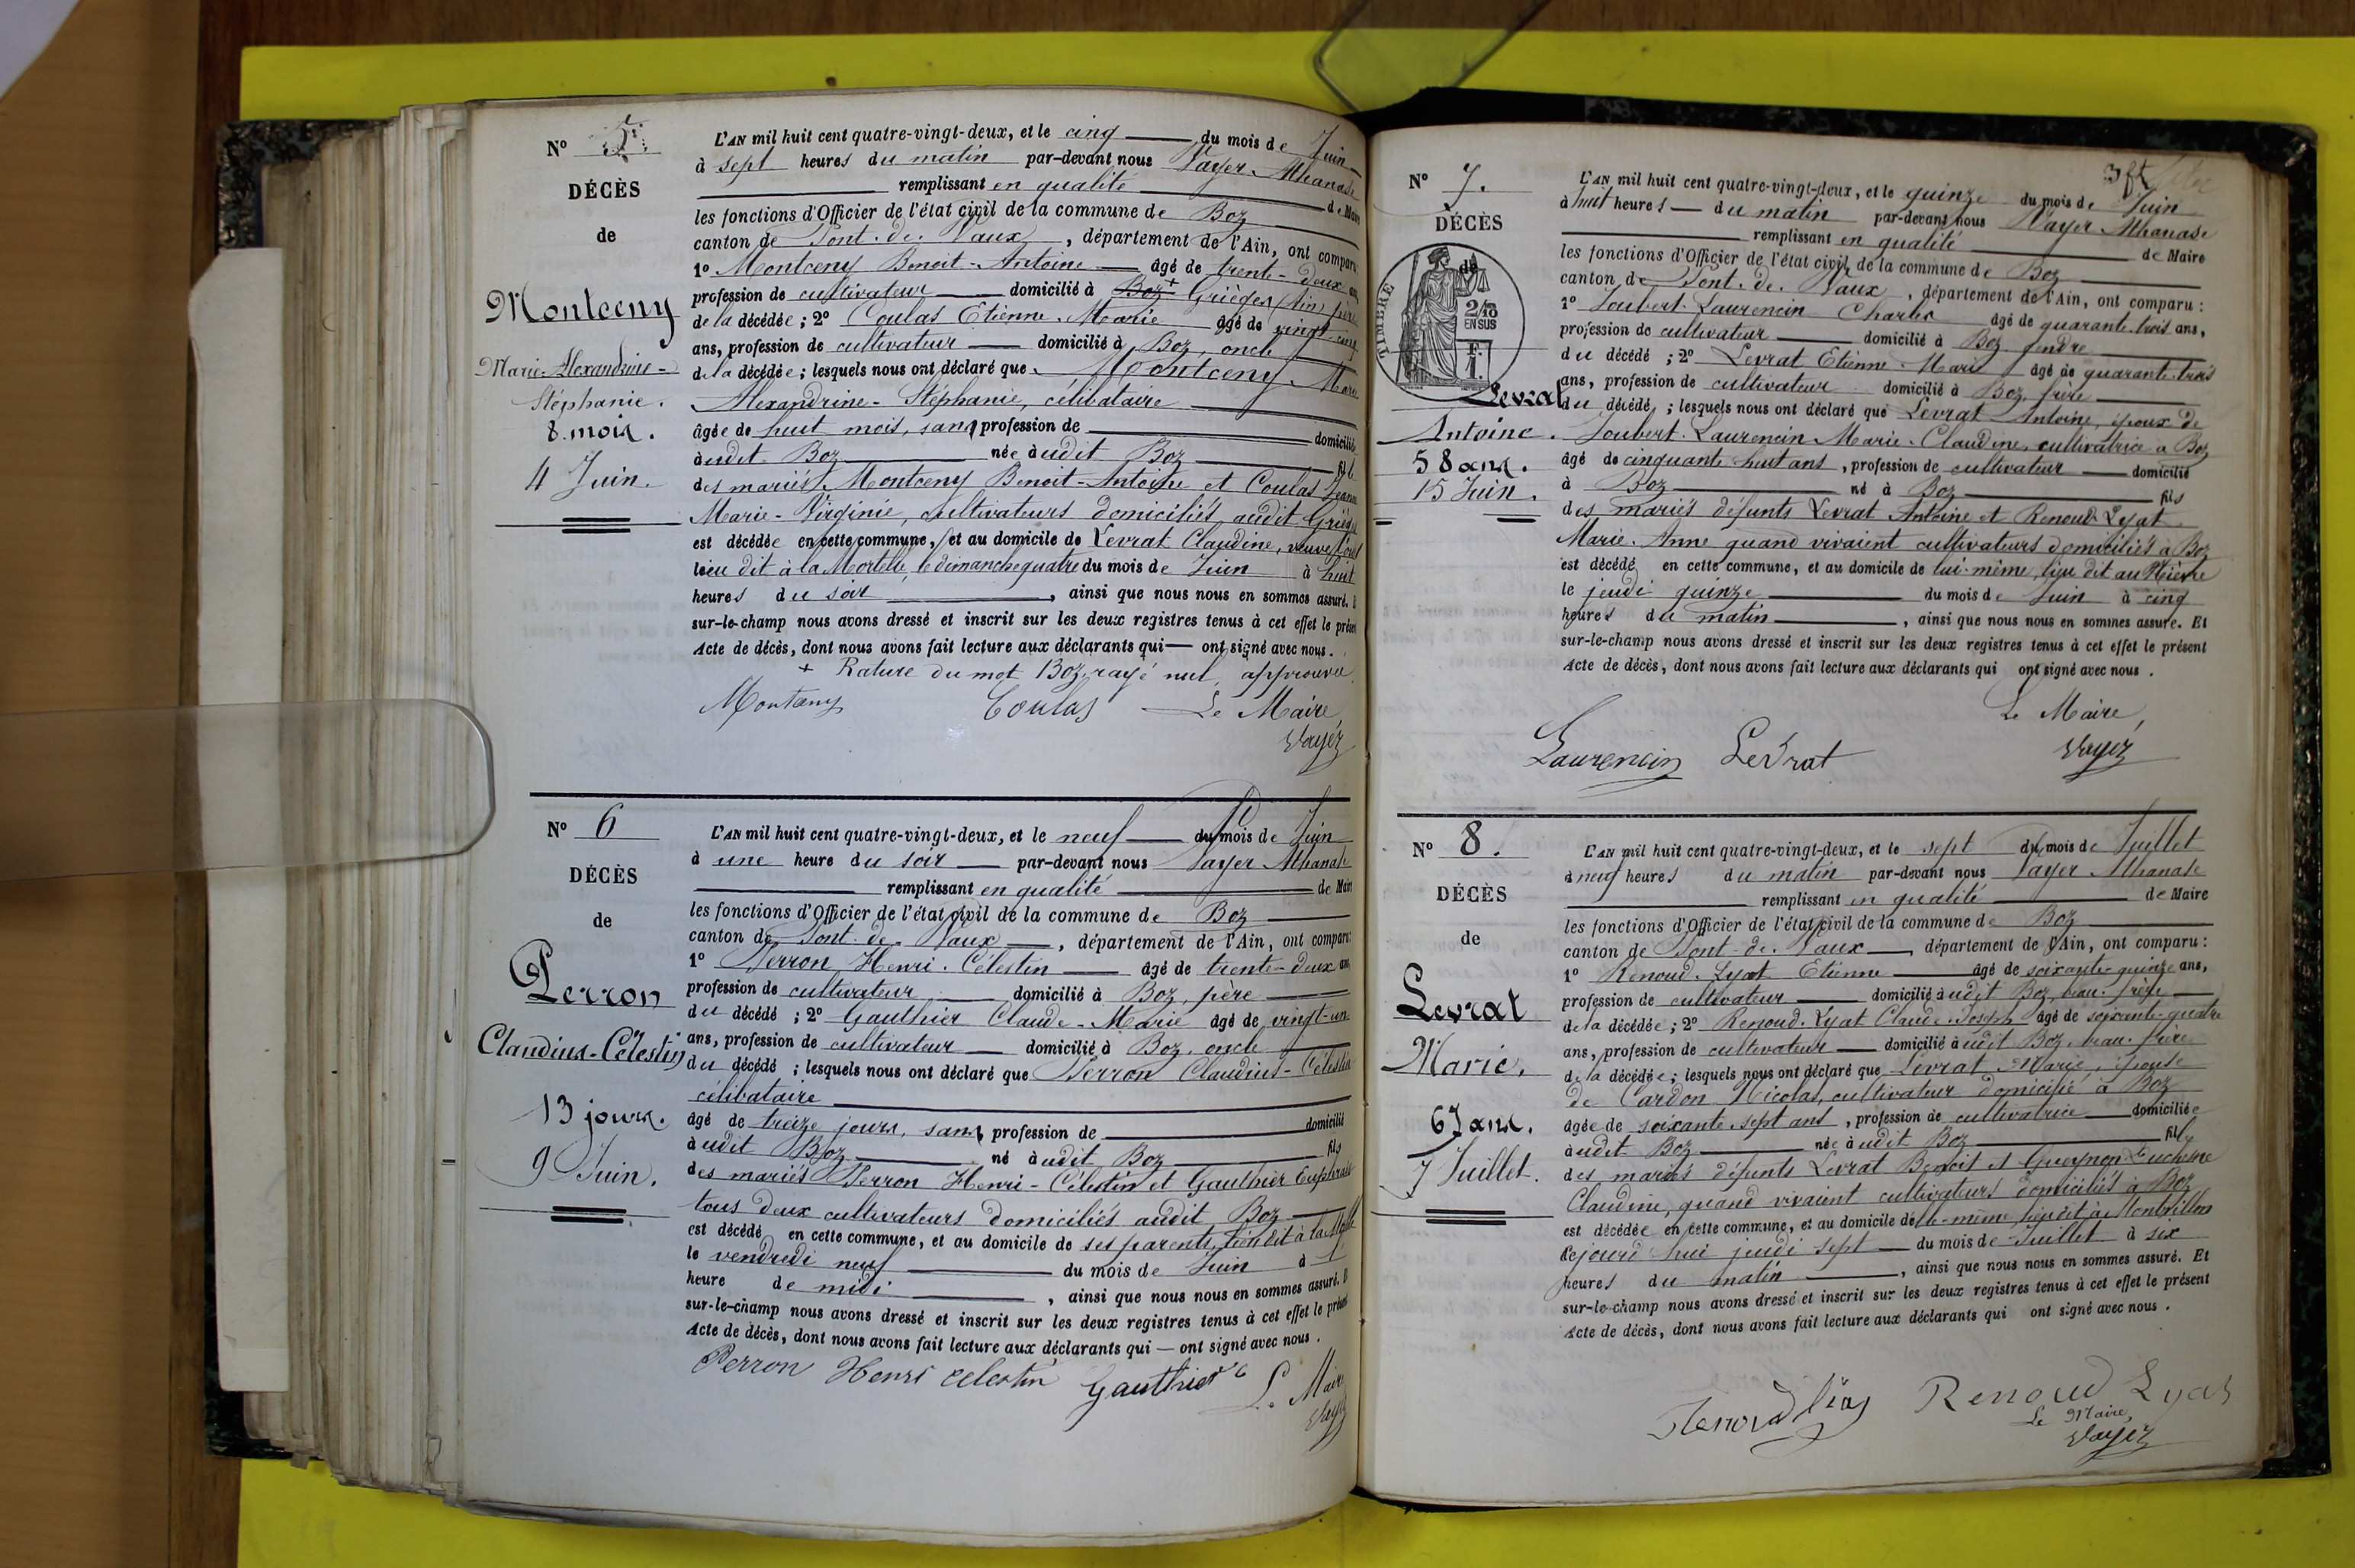 N° 5
DÉCÈS
de
Montceny
Marie-Alexandrine-
Stéphanie.
8. mois.
4 Juin.
L'AN mil huit cent quatre-vingt-deux, et le cinq du mois de Juin
à sept heures du matin par-devant nous Vayer Athanase
remplissant en qualité de Maire
les fonctions d'Officier de l'état civil de la commune de Boz
canton de Pont-de-Vaux, département de l'Ain, ont comparu
1° Montceny Benoit-Antoine âgé de trente-deux ans
profession de cultivateur domicilié à Boz + Grièges (Ain) père
de la décédée; 2° Coulas Etienne-Marie âgé de vingt-cinq
ans, profession de cultivateur domicilié à Boz, oncle
de la décédée; lesquels nous ont déclaré que Montceny Marie
Alexandrine-Stéphanie, célibataire
âgée de huit mois, sans profession de domiciliée
audit Boz née audit Boz fille
des mariés Montceny Benoit-Antoine et Coulas Jeanne
Marie-Virginie, cultivateurs domiciliés audit Grièges
est décédée en cette commune, et au domicile de Levrat Claudine, veuve Coulas
lieu dit à la Mortelle, le dimanche quatre du mois de Juin à huit
heures du soir, ainsi que nous nous en sommes assuré. Et
sur-le-champ nous avons dressé et inscrit sur les deux registres tenus à cet effet le présent
Acte de décès, dont nous avons fait lecture aux déclarants qui — ont signé avec nous.
+ Rature du mot Boz, rayé nul, approuvée.
Montceny Coulas Le Maire,
Vayer
N° 6
DÉCÈS
de
Perron
Claudius-Célestin
13 jours.
9 Juin.
L'AN mil huit cent quatre-vingt-deux, et le neuf du mois de Juin
à une heure du soir par-devant nous Vayer Athanase
remplissant en qualité de Maire
les fonctions d'Officier de l'état civil de la commune de Boz
canton de Pont-de-Vaux, département de l'Ain, ont comparu:
1° Perron Henri-Célestin âgé de trente-deux ans
profession de cultivateur domicilié à Boz, père
du décédé; 2° Gauthier Claude-Marie âgé de vingt-un
ans, profession de cultivateur domicilié à Boz, oncle
du décédé; lesquels nous ont déclaré que Perron Claudius-Célestin
célibataire
âgé de treize jours, sans profession de domicilié
audit Boz né audit Boz fils
des mariés Perron Henri-Célestin et Gauthier Euphrasie
tous deux cultivateurs domiciliés audit Boz
est décédé en cette commune, et au domicile de ses parents, lieu dit à la
le vendredi neuf du mois de Juin à 1
heure de midi, ainsi que nous nous en sommes assuré. Et
sur-le-champ nous avons dressé et inscrit sur les deux registres tenus à cet effet le présent
Acte de décès, dont nous avons fait lecture aux déclarants qui — ont signé avec nous.
Perron Henri Celestin Gauthier C Le Maire
Vayer
N° 7.
DÉCÈS
de
TIMBRE
2/10
EN SUS
F.
1.
Levrat
Antoine.
58 ans.
15 Juin.
L'AN mil huit cent quatre-vingt-deux, et le quinze du mois de Juin
à huit heures du matin par-devant nous Vayer Athanase
remplissant en qualité de Maire
les fonctions d'Officier de l'état civil de la commune de Boz
canton de Pont-de-Vaux, département de l'Ain, ont comparu:
1° Joubert-Laurencin Charles âgé de quarante-trois ans,
profession de cultivateur domicilié à Boz, gendre
du décédé; 2° Levrat Etienne-Marie âgé de quarante-trois
ans, profession de cultivateur domicilié à Boz, frère
du décédé; lesquels nous ont déclaré que Levrat Antoine, époux de
Joubert-Laurencin Marie-Claudine, cultivatrice à Boz
âgé de cinquante huit ans, profession de cultivateur domicilié
à Boz né à Boz fils
des mariés défunts Levrat Antoine et Renoud-Lyat
Marie-Anne quand vivaient cultivateurs domiciliés à Boz
est décédé en cette commune, et au domicile de lui-même, lieu dit au
le jeudi quinze du mois de Juin à cinq
heures du matin, ainsi que nous nous en sommes assuré. Et
sur-le-champ nous avons dressé et inscrit sur les deux registres tenus à cet effet le présent
Acte de décès, dont nous avons fait lecture aux déclarants qui ont signé avec nous.
Le Maire,
Laurencin Levrat Vayer
N° 8.
DÉCÈS
de
Levrat
Marie.
67 ans.
7 Juillet.
L'AN mil huit cent quatre-vingt-deux, et le sept du mois de Juillet
à neuf heures du matin par-devant nous Vayer Athanase
remplissant en qualité de Maire
les fonctions d'Officier de l'état civil de la commune de Boz
canton de Pont-de-Vaux, département de l'Ain, ont comparu:
1° Renoud-Lyat Etienne âgé de soixante-quinze ans,
profession de cultivateur domicilié audit Boz, beau-frère
de la décédée; 2° Renoud-Lyat Claude-Joseph âgé de soixante-quatre
ans, profession de cultivateur domicilié audit Boz, beau-frère
de la décédée; lesquels nous ont déclaré que Levrat Marie, épouse
de Cardon Nicolas, cultivateur domicilié à Boz
âgée de soixante sept ans, profession de cultivatrice domiciliée
audit Boz née audit Boz fille
des mariés défunts Levrat Benoit et Guyenon Duchesne
Claudine, quand vivaient cultivateurs domiciliés à Boz
est décédée en cette commune, et au domicile d'elle-même, lieu dit à Montrillon
cejourd'hui jeudi sept du mois de Juillet à six
heures du matin, ainsi que nous nous en sommes assuré. Et
sur-le-champ nous avons dressé et inscrit sur les deux registres tenus à cet effet le présent
Acte de décès, dont nous avons fait lecture aux déclarants qui ont signé avec nous.
Renoud Lyat Renoud Lyat
Le Maire,
Vayer